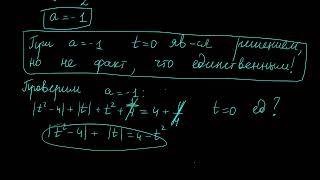 2
a = -1
При a = -1 t = 0 яв-ся решением,
но не факт, что единственным!
Проверим a = -1:
|t² - 4| + |t| + t² + 4 = 4 + 4 t = 0 ед?
|t² - 4| + |t| = 4 - t²